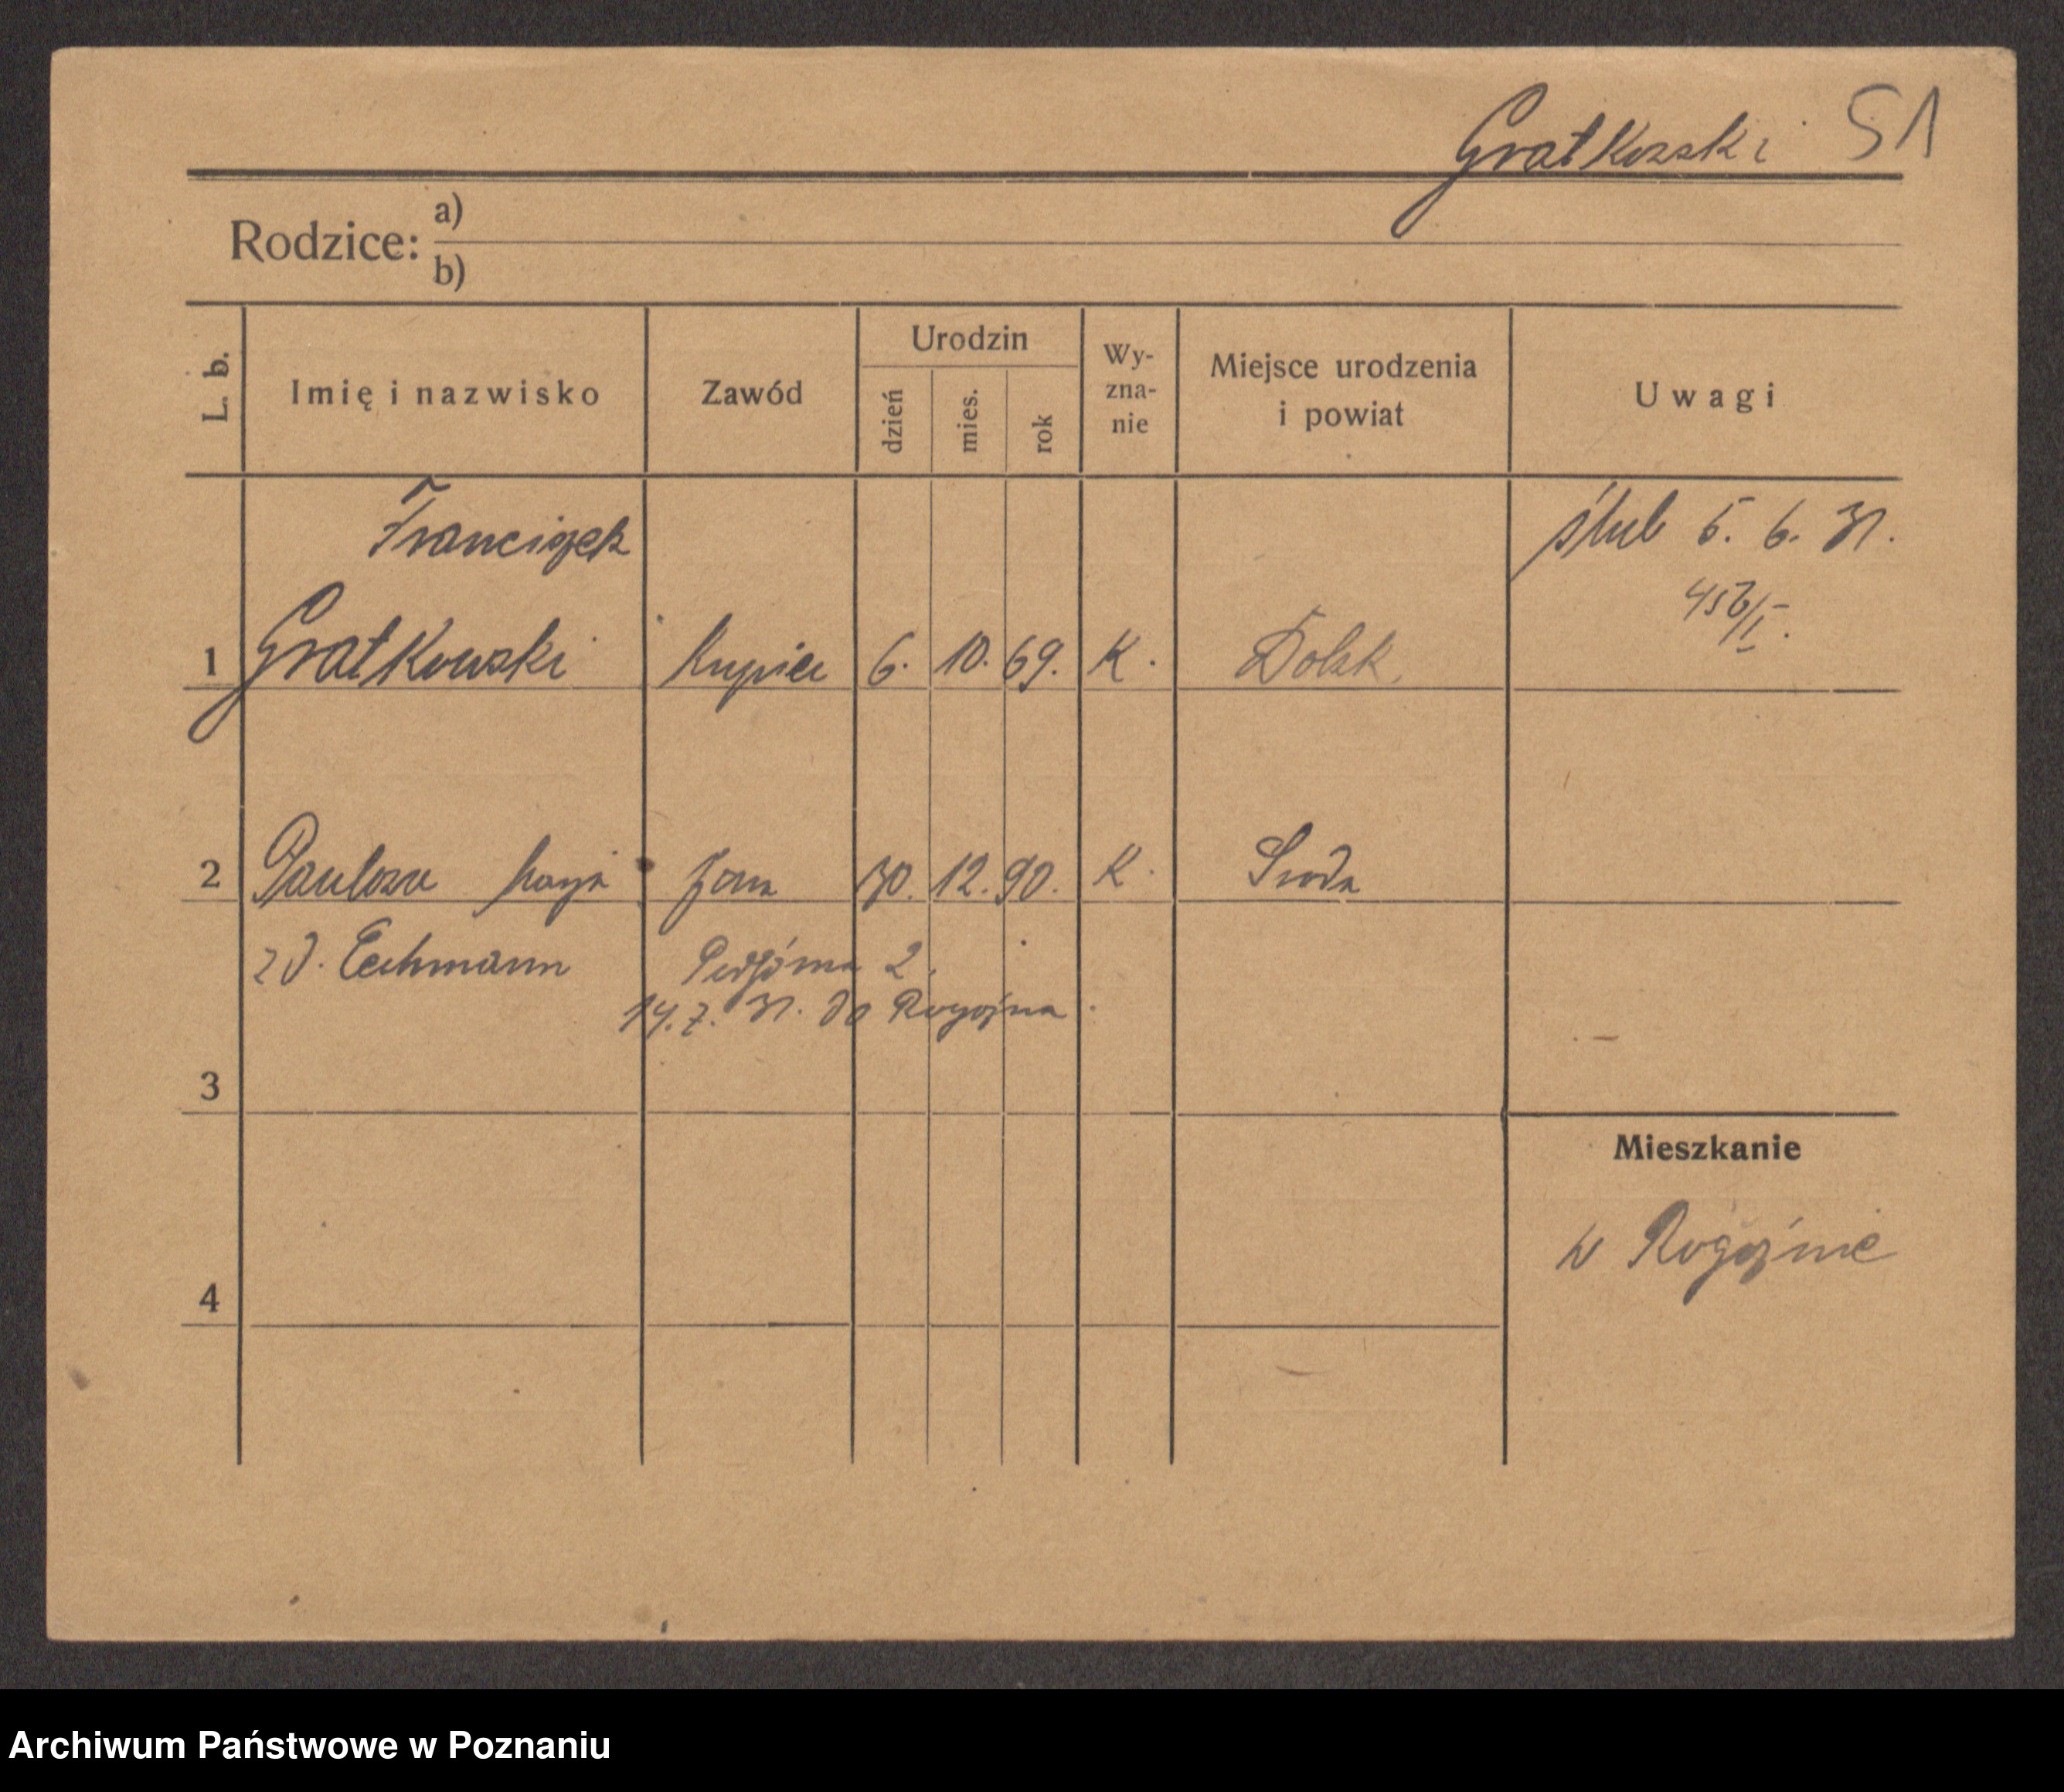 Gratkowski 51
Rodzice: a)
b)
L. b. Imię i nazwisko Zawód Urodzin dzień mies. rok Wy-zna-nie Miejsce urodzenia i powiat Uwagi
Franciszek ślub 5. 6. 31.
1 Gratkowski Kupiec 6. 10. 69. K. Dolsk.
2 żona 30. 12. 90. K. Środa
zd. Podgórna 2.
14. 7. 31. do Rogoźna.
3
Mieszkanie
w Rogoźnie
4
Archiwum Państwowe w Poznaniu